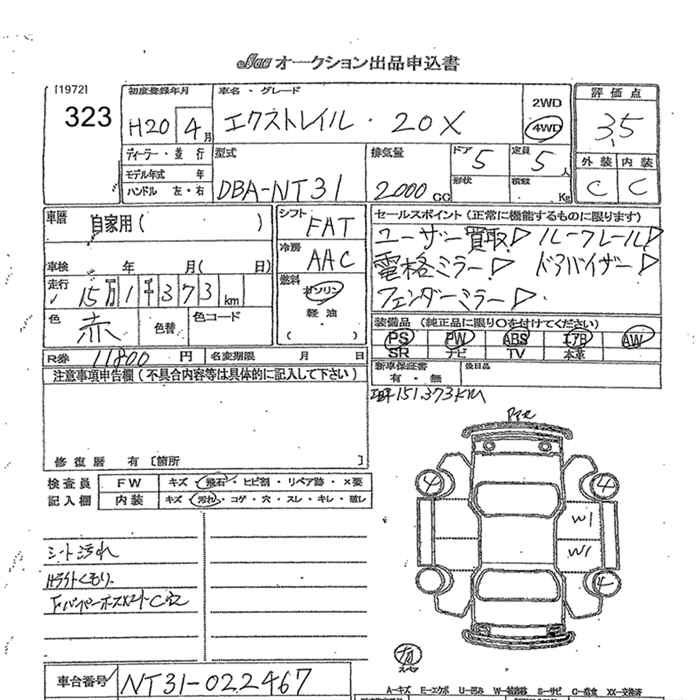 JAA オークション出品申込書
[1972]
323
初度登録年月
H20 4月
車名・グレード
エクストレイル・20X
2WD
4WD
評価点
3.5
外装 内装
C C
ディーラー・並行
モデル年式 年
ハンドル 左・右
型式
DBA-NT31
排気量
2000CC
ドア
5
形状
定員
5人
積載
Kg
車暦
自家用( )
車検 年 月( 日)
走行
15万1千373km
色
赤
色替
色コード
シフト
FAT
冷房
AAC
燃料
ガソリン
軽油
( )
セールスポイント(正常に機能するものに限ります)
ユーザー買取▷ ルーフレール▷
電格ミラー▷ ドアバイザー▷
フェンダーミラー▷
装備品(純正品に限り○を付けてください)
PS PW ABS エアB AW
SR ナビ TV 本革
新車保証書
有・無
後日品
R券 11800円 名変期限 月 日
注意事項申告欄(不具合内容等は具体的に記入して下さい)
151,373KM
修復暦 有 [箇所 ]
検査員
記入欄
FW キズ・飛石・ヒビ割・リペア跡・×要
内装 キズ・汚れ・コゲ・穴・スレ・キレ・破レ
シート汚れ
Hライトくもり
4 4
W1
W1
4
車台番号 NT31-022467
A-キズ E-エクボ U-凹み W-補修跡 S-サビ C-腐食 XX-交換済